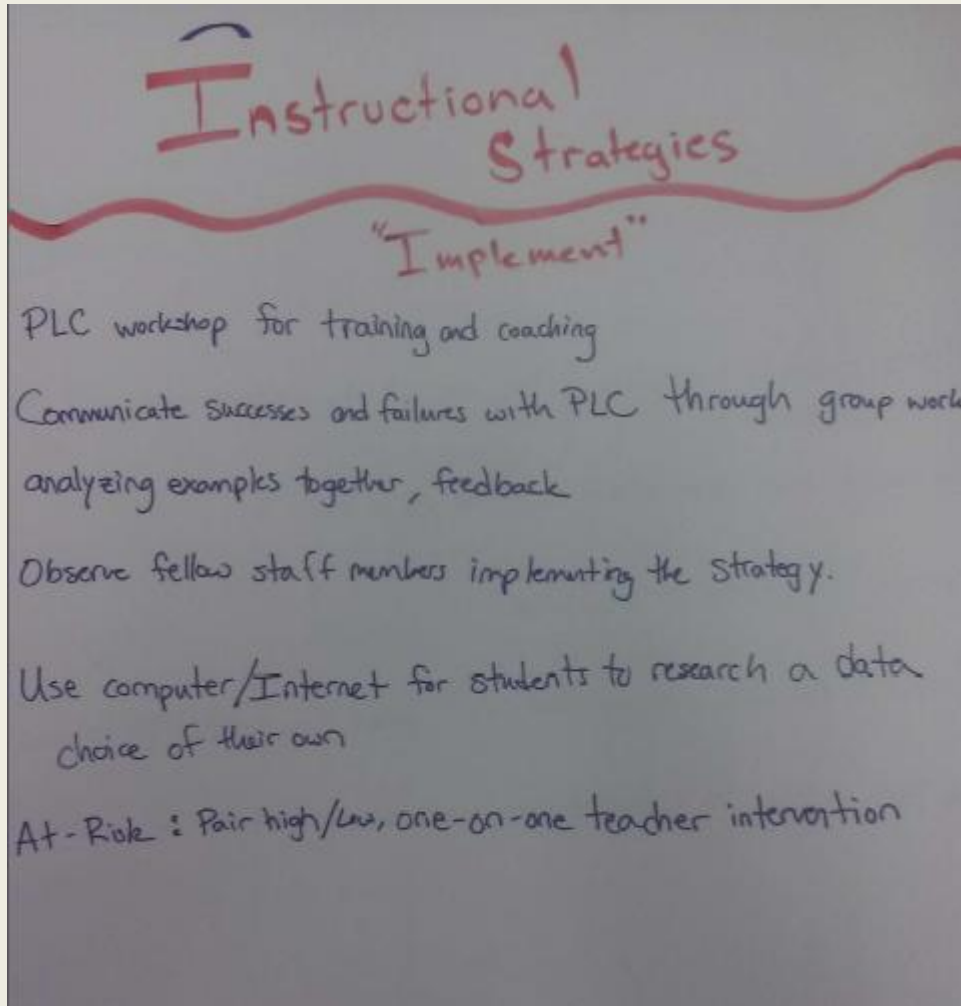 Instructional
Strategies
"Implement"
PLC workshop for training and coaching
Communicate successes and failures with PLC through group work
analyzing examples together, feedback
Observe fellow staff members implementing the strategy.
Use computer/Internet for students to research a data
choice of their own
At-Risk: Pair high/low, one-on-one teacher intervention